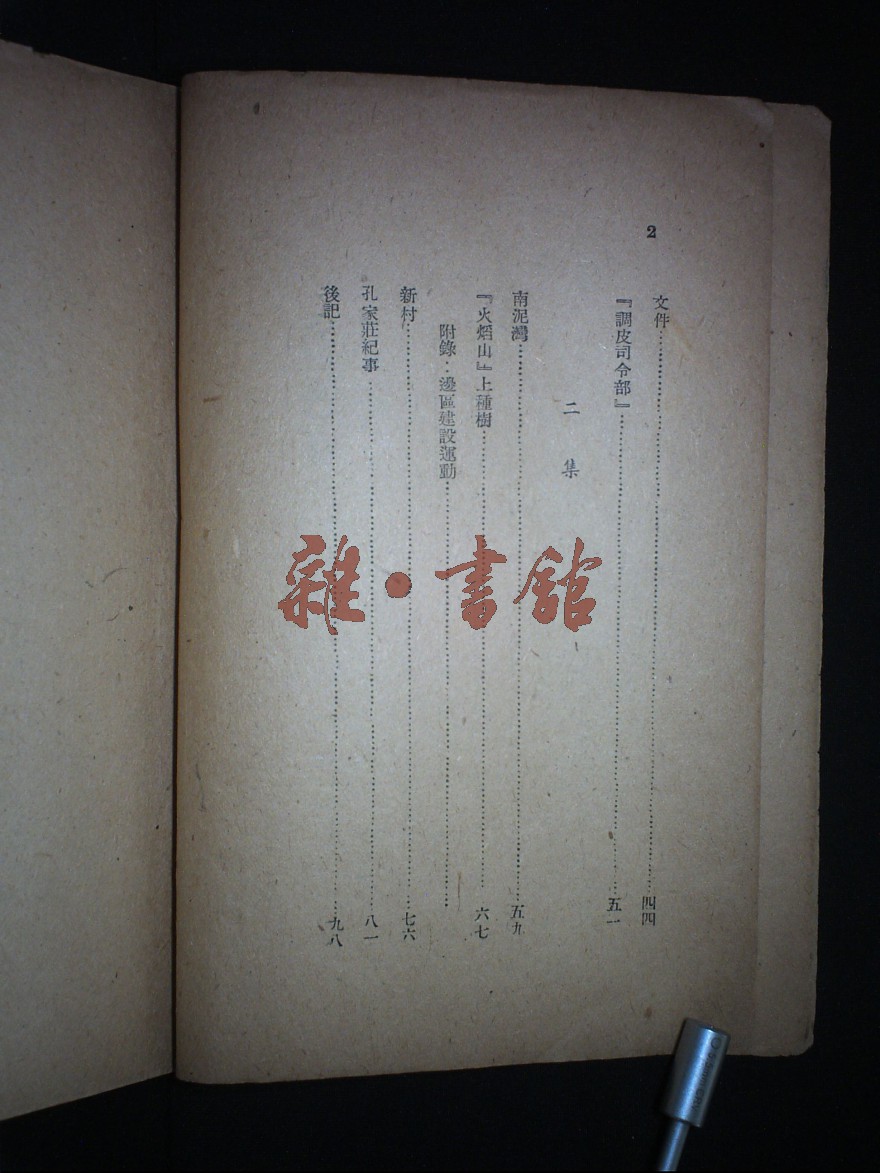 2
文件……四四
『調皮司令部』……五一
二集
南泥灣……五九
『火焰山』上種樹……六七
附錄：邊區建設運動……
新村……七六
孔家莊紀事……八一
後記……九八
雜·書館